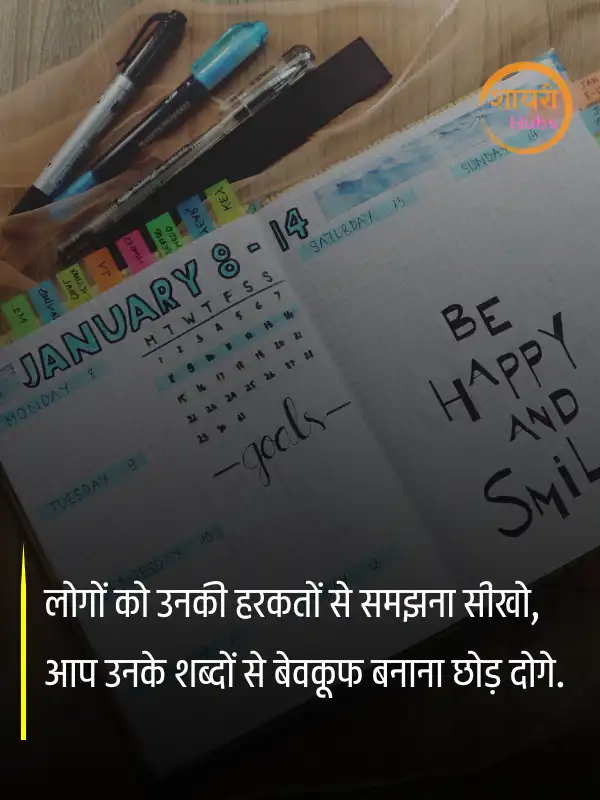 शायरी
Hubs
KEY
JANUARY 8 - 14
M T W T F S S
1 2 3 4 5 6 7
8 9 10 11 12 13 14
15 16 17 18 19 20 21
22 23 24 25 26 27 28
29 30 31
MONDAY 8
TUESDAY 9
10
12
goals
SATURDAY 13
SUNDAY
BE
HAPPY
AND
लोगों को उनकी हरकतों से समझना सीखो,
आप उनके शब्दों से बेवकूफ बनाना छोड़ दोगे.